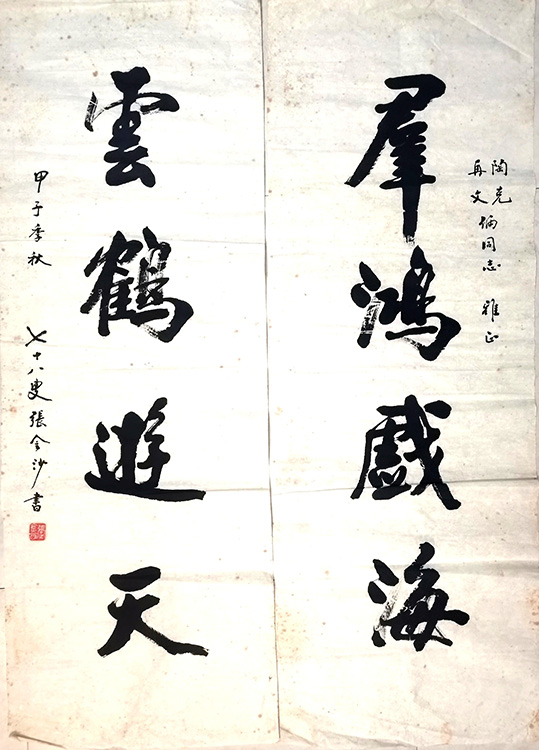 陶克
再文
倆同志 雅正
羣鴻戲海
雲鶴遊天
甲子季秋 七十八叟張金沙書